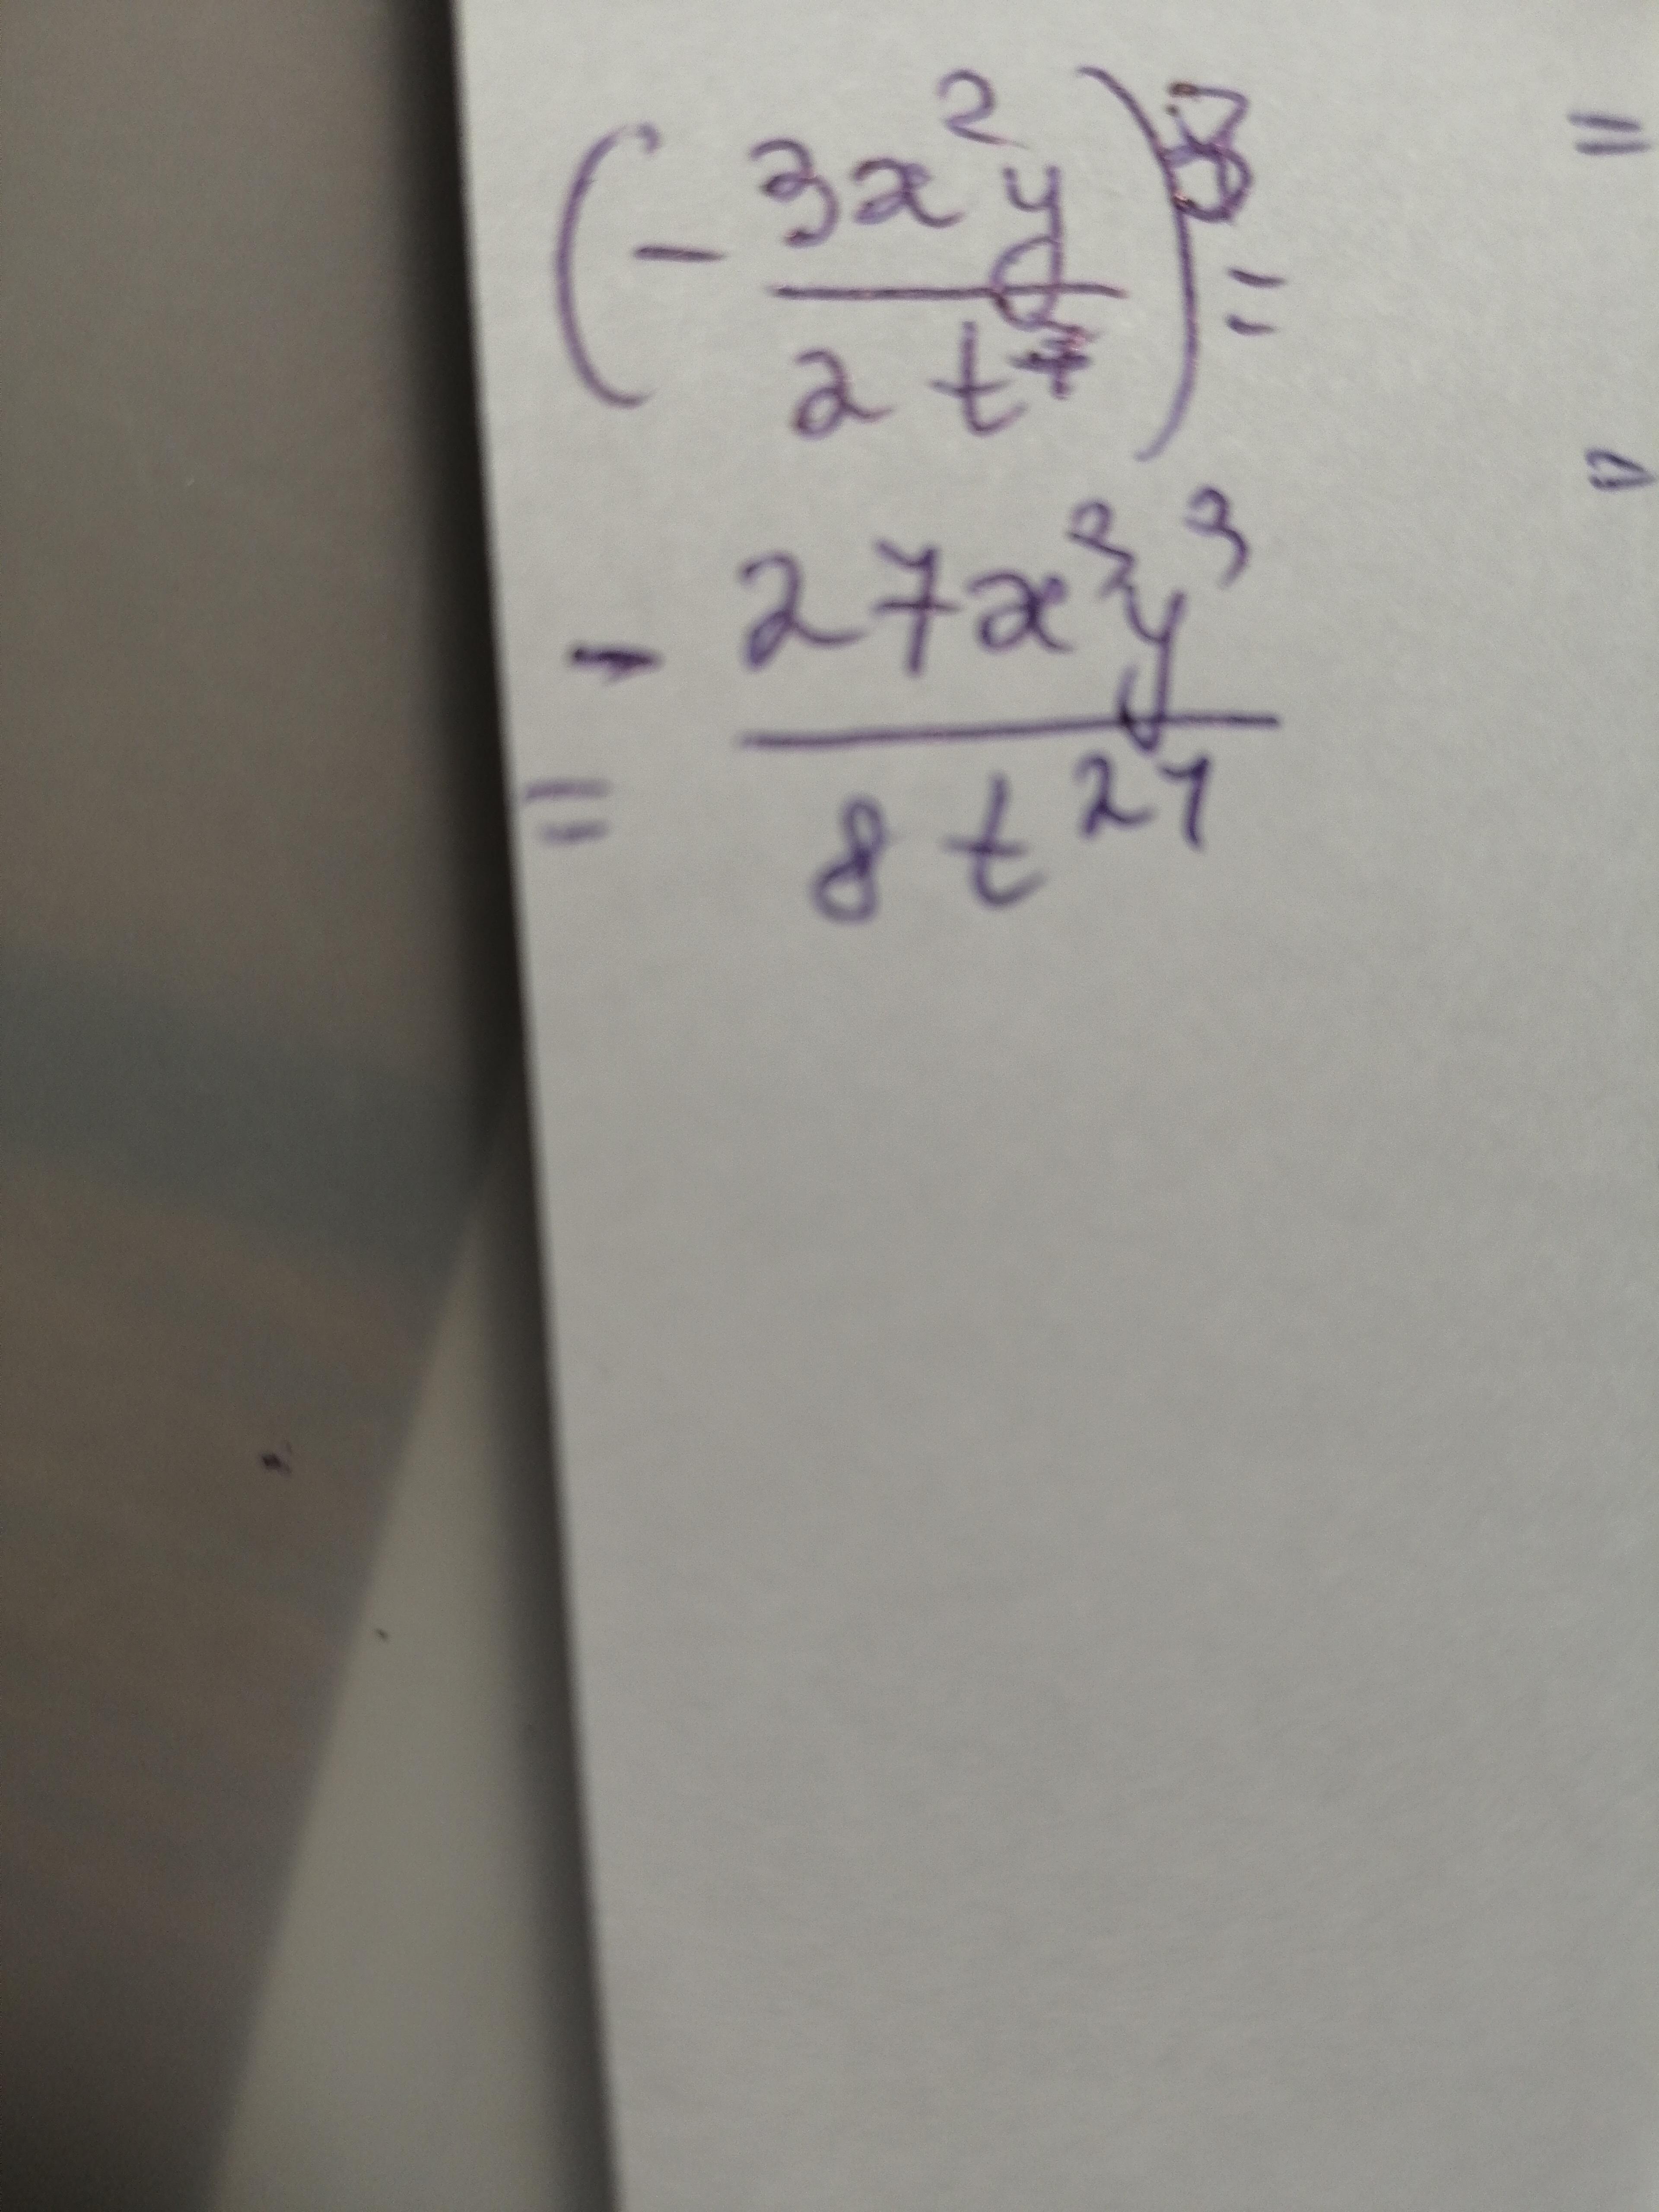 (- 3x²y / 2t⁷)³ =
= - 27x³y³ / 8t²⁷
=
=